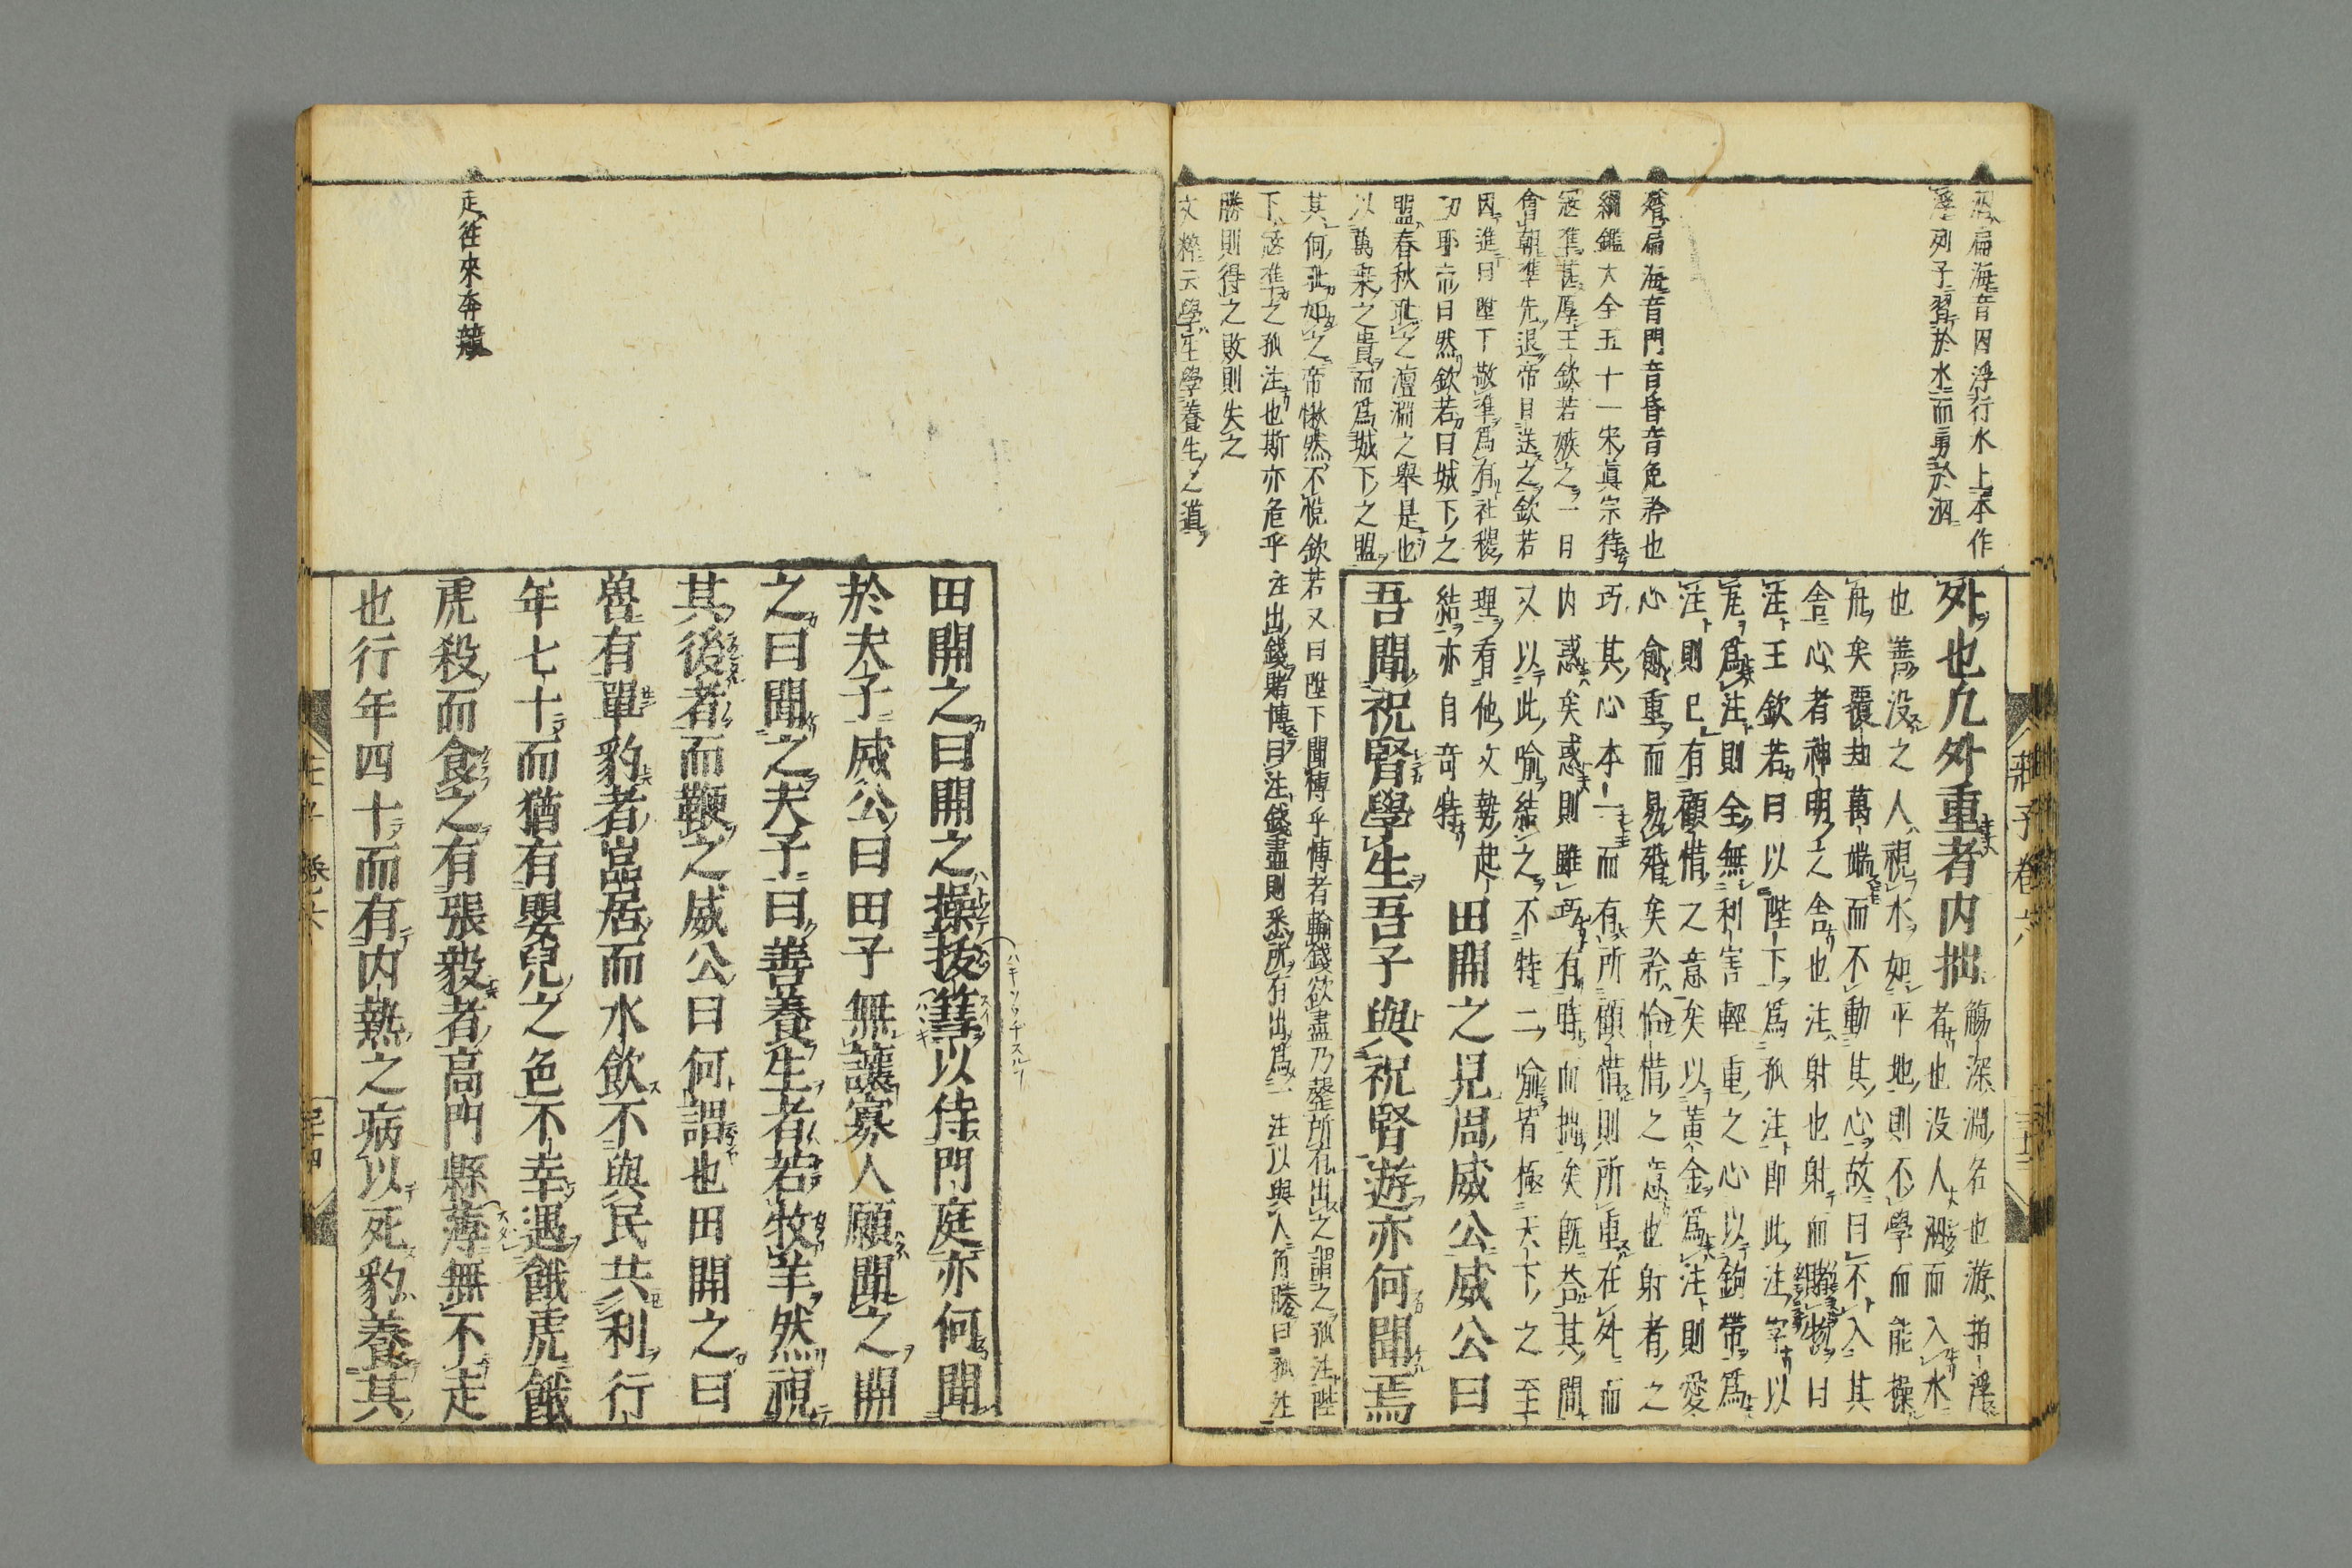 泅扁海音囚浮行水上本作
㴾列子習於水而勇於泅
殙扁海音門音昏音免矜也
綱鑑大全五十一宋眞宗待
寇準甚厚王欽若嫉之一日
會朝準先退帝目送之欽若
因進曰陛下敬準爲有社稷
功耶帝曰然欽若曰城下之
盟春秋耻之澶淵之舉是也
以萬乘之貴而爲城下之盟
其何耻如之帝愀然不悅欽若又曰陛下聞博乎博者輸錢欲盡乃罄所有出之謂之孤注陛
下寇準之孤注也斯亦危乎注出錢賭博曰注錢盡則悉所有出爲一注以與人角勝曰孤注
勝則得之敗則失之
文粹云學生學養生之道
外也凡外重者内拙觴深淵名也游拍浮
者也没人泅而入水
也善没之人視水如平地則不學而能操
舟矣覆却萬端而不動其心故曰不入其
舍心者神明之舍也注射也射而賭物曰
注王欽若曰以陛下爲孤注即此注字以
瓦爲注則全無利害輕重之心以鉤帶爲
注則已有顧惜之意矣以黄金爲注則愛
心愈重而易殙矣矜恪惜之意也射者之
巧其心本一而有所顧惜則所重在外而
内惑矣惑則雖巧有時而拙矣既荅其問
又以此喻結之不特二喻皆極天下之至
理看他文勢起
結亦自奇特
田開之見周威公威公曰
吾聞祝腎學生吾子與祝腎遊亦何聞焉
莊子卷六
田開之曰開之操拔篲以侍門庭亦何聞
於夫子威公曰田子無讓寡人願聞之開
之曰聞之夫子曰善養生者若牧羊然視
其後者而鞭之威公曰何謂也田開之曰
魯有單豹者嵓居而水飲不與民共利行
年七十而猶有嬰兒之色不幸遇餓虎餓
虎殺而食之有張毅者高門縣薄無不走
也行年四十而有内熱之病以死豹養其
走往來奔競